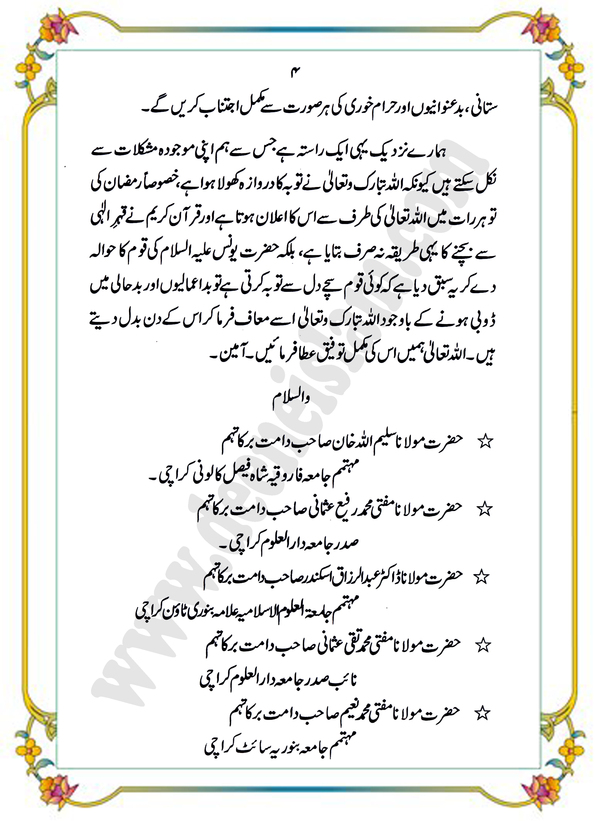 ۴
ستانی، بدعنوانیوں اور حرام خوری کی ہر صورت سے مکمل اجتناب کریں گے۔
ہمارے نزدیک یہی ایک راستہ ہے جس سے ہم اپنی موجودہ مشکلات سے
نکل سکتے ہیں کیونکہ اللہ تبارک وتعالیٰ نے توبہ کا دروازہ کھولا ہوا ہے، خصوصاً رمضان کی
تو ہر رات میں اللہ تعالیٰ کی طرف سے اس کا اعلان ہوتا ہے اور قرآن کریم نے قہرِ الٰہی
سے بچنے کا یہی طریقہ نہ صرف بتایا ہے، بلکہ حضرت یونس علیہ السلام کی قوم کا حوالہ
دے کر یہ سبق دیا ہے کہ کوئی قوم سچے دل سے توبہ کرتی ہے تو بداعمالیوں اور بدحالی میں
ڈوبی ہونے کے باوجود اللہ تبارک وتعالیٰ اسے معاف فرما کر اس کے دن بدل دیتے
ہیں۔ اللہ تعالیٰ ہمیں اس کی مکمل توفیق عطا فرمائیں۔ آمین۔
والسلام
☆ حضرت مولانا سلیم اللہ خان صاحب دامت برکاتہم
مہتمم جامعہ فاروقیہ شاہ فیصل کالونی کراچی۔
☆ حضرت مولانا مفتی محمد رفیع عثمانی صاحب دامت برکاتہم
صدر جامعہ دارالعلوم کراچی۔
☆ حضرت مولانا ڈاکٹر عبدالرزاق اسکندر صاحب دامت برکاتہم
مہتمم جامعۃ العلوم الاسلامیہ علامہ بنوری ٹاؤن کراچی
☆ حضرت مولانا مفتی محمد تقی عثمانی صاحب دامت برکاتہم
نائب صدر جامعہ دارالعلوم کراچی
☆ حضرت مولانا مفتی محمد نعیم صاحب دامت برکاتہم
مہتمم جامعہ بنوریہ سائٹ کراچی
www.deeneislam.com